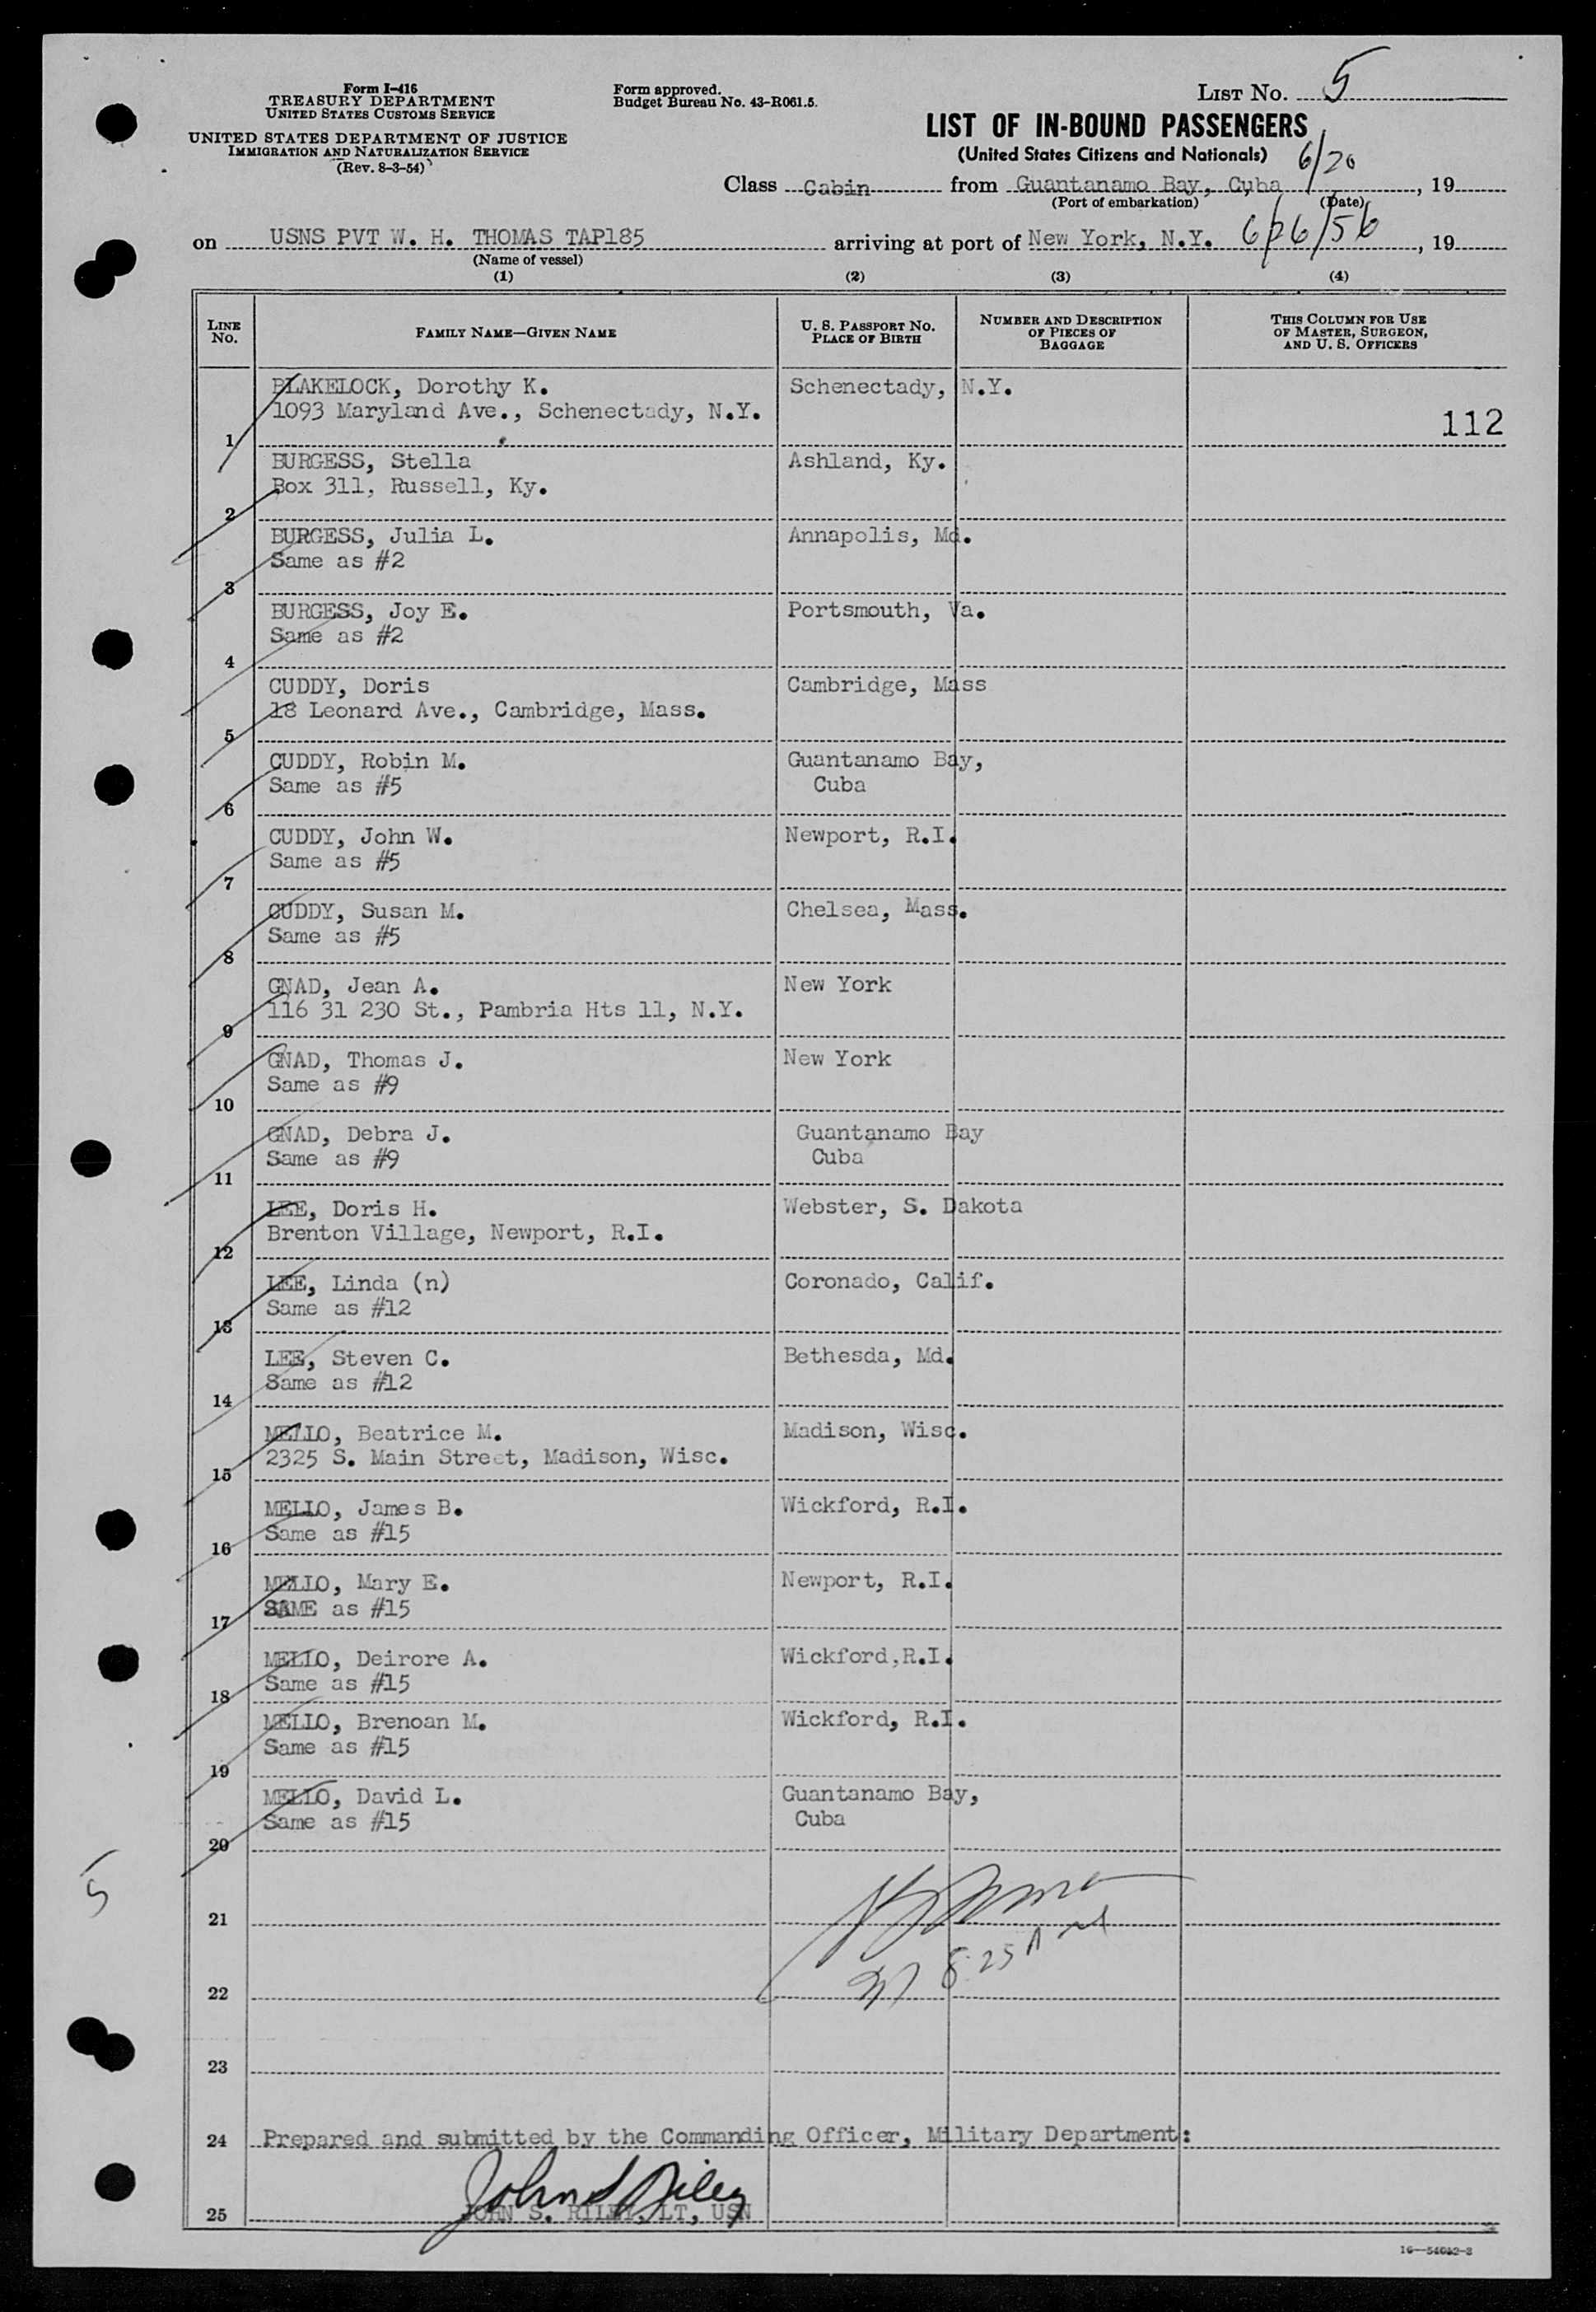 Form I-416
TREASURY DEPARTMENT
UNITED STATES CUSTOMS SERVICE
UNITED STATES DEPARTMENT OF JUSTICE
IMMIGRATION AND NATURALIZATION SERVICE
(Rev. 8-3-54)
Form approved.
Budget Bureau No. 43-R061.5.
LIST No. 5
LIST OF IN-BOUND PASSENGERS
(United States Citizens and Nationals)
Class Cabin from Guantanamo Bay, Cuba 6/20, 19
(Port of embarkation) (Date)
on USNS PVT W. H. THOMAS TAP185 arriving at port of New York, N.Y. 6/26/56, 19
(Name of vessel)
(1) (2) (3) (4)
LINE No.
FAMILY NAME—GIVEN NAME
U. S. PASSPORT NO.
PLACE OF BIRTH
NUMBER AND DESCRIPTION
OF PIECES OF
BAGGAGE
THIS COLUMN FOR USE
OF MASTER, SURGEON,
AND U. S. OFFICERS
BLAKELOCK, Dorothy K. Schenectady, N.Y.
1093 Maryland Ave., Schenectady, N.Y.
112
1
BURGESS, Stella Ashland, Ky.
Box 311, Russell, Ky.
2
BURGESS, Julia L. Annapolis, Md.
Same as #2
3
BURGESS, Joy E. Portsmouth, Va.
Same as #2
4
CUDDY, Doris Cambridge, Mass
18 Leonard Ave., Cambridge, Mass.
5
CUDDY, Robin M. Guantanamo Bay,
Same as #5 Cuba
6
CUDDY, John W. Newport, R.I.
Same as #5
7
CUDDY, Susan M. Chelsea, Mass.
Same as #5
8
GNAD, Jean A. New York
116 31 230 St., Pambria Hts 11, N.Y.
9
GNAD, Thomas J. New York
Same as #9
10
GNAD, Debra J. Guantanamo Bay
Same as #9 Cuba
11
LEE, Doris H. Webster, S. Dakota
Brenton Village, Newport, R.I.
12
LEE, Linda (n) Coronado, Calif.
Same as #12
13
LEE, Steven C. Bethesda, Md.
Same as #12
14
MELLO, Beatrice M. Madison, Wisc.
2325 S. Main Street, Madison, Wisc.
15
MELLO, James B. Wickford, R.I.
Same as #15
16
MELLO, Mary E. Newport, R.I.
SAME as #15
17
MELLO, Deirore A. Wickford,R.I.
Same as #15
18
MELLO, Brenoan M. Wickford, R.I.
Same as #15
19
MELLO, David L. Guantanamo Bay,
Same as #15 Cuba
20
5
21
8:25 A
22
23
24 Prepared and submitted by the Commanding Officer, Military Department:
John S Riley
25 JOHN S. RILEY, LT, USN